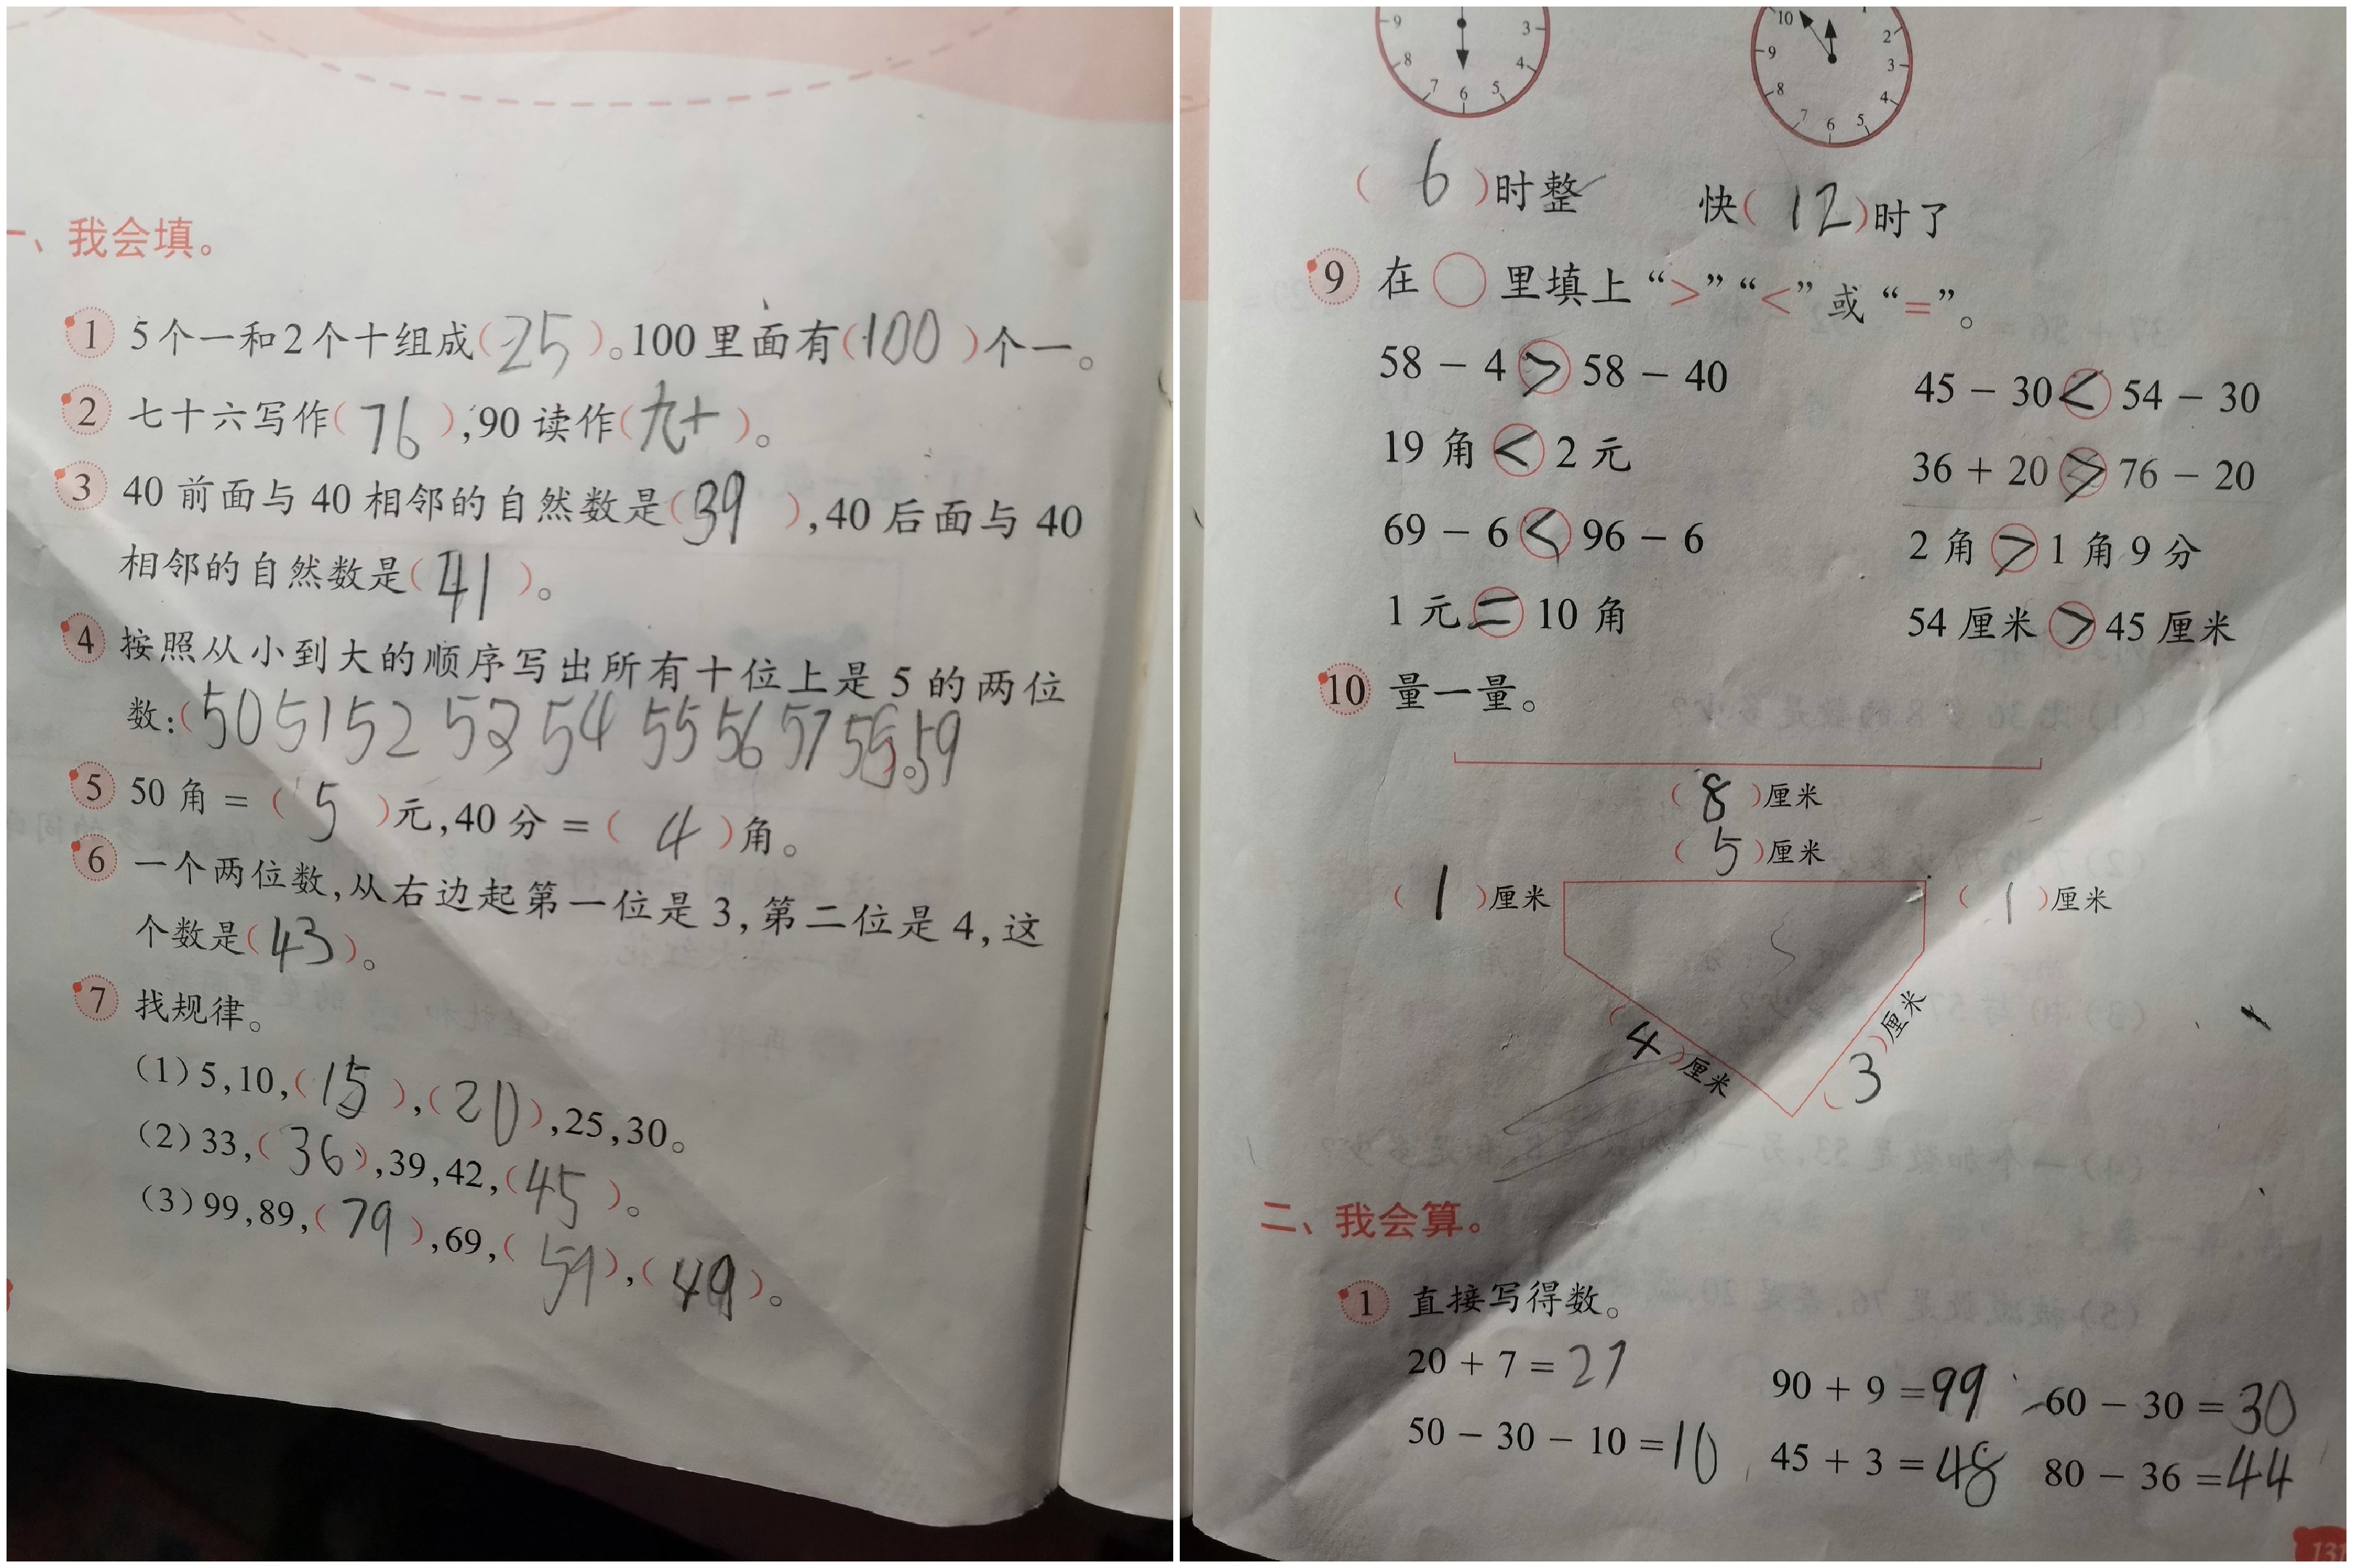 一、我会填。
1 5个一和2个十组成(25)。100里面有(100)个一。
2 七十六写作(76),90读作(九十)。
3 40前面与40相邻的自然数是(39),40后面与40
相邻的自然数是(41)。
4 按照从小到大的顺序写出所有十位上是5的两位
数:(50 51 52 53 54 55 56 57 58 59)。
5 50角=(5)元,40分=(4)角。
6 一个两位数,从右边起第一位是3,第二位是4,这
个数是(43)。
7 找规律。
(1)5,10,(15),(20),25,30。
(2)33,(36),39,42,(45)。
(3)99,89,(79),69,(59),(49)。
9 3
8 4
7 6 5
10 2
9 3
8 4
7 6 5
(6)时整 快(12)时了
9 在○里填上“>”“<”或“=”。
58-4>58-40 45-30<54-30
19角<2元 36+20>76-20
69-6<96-6 2角>1角9分
1元=10角 54厘米>45厘米
10 量一量。
(8)厘米
(5)厘米
(1)厘米 (1)厘米
(4)厘米 (3)厘米
二、我会算。
1 直接写得数。
20+7=27 90+9=99 60-30=30
50-30-10=10 45+3=48 80-36=44
131